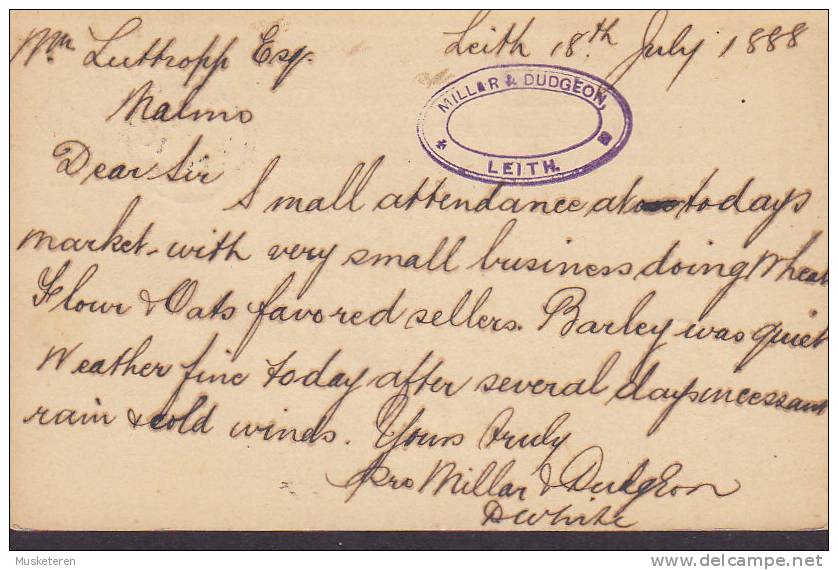 Wm Luttropp Esq. Leith 18th July 1888
Malmo
MILLAR & DUDGEON,
LEITH.
Dear Sir
Small attendance at todays
market with very small business doing Wheat
Flour & Oats favored sellers. Barley was quiet
Weather fine today after several days incessant
rain & cold winds. Yours truly
pro Millar & Dudgeon
D White
Musketeren
delcampe.net